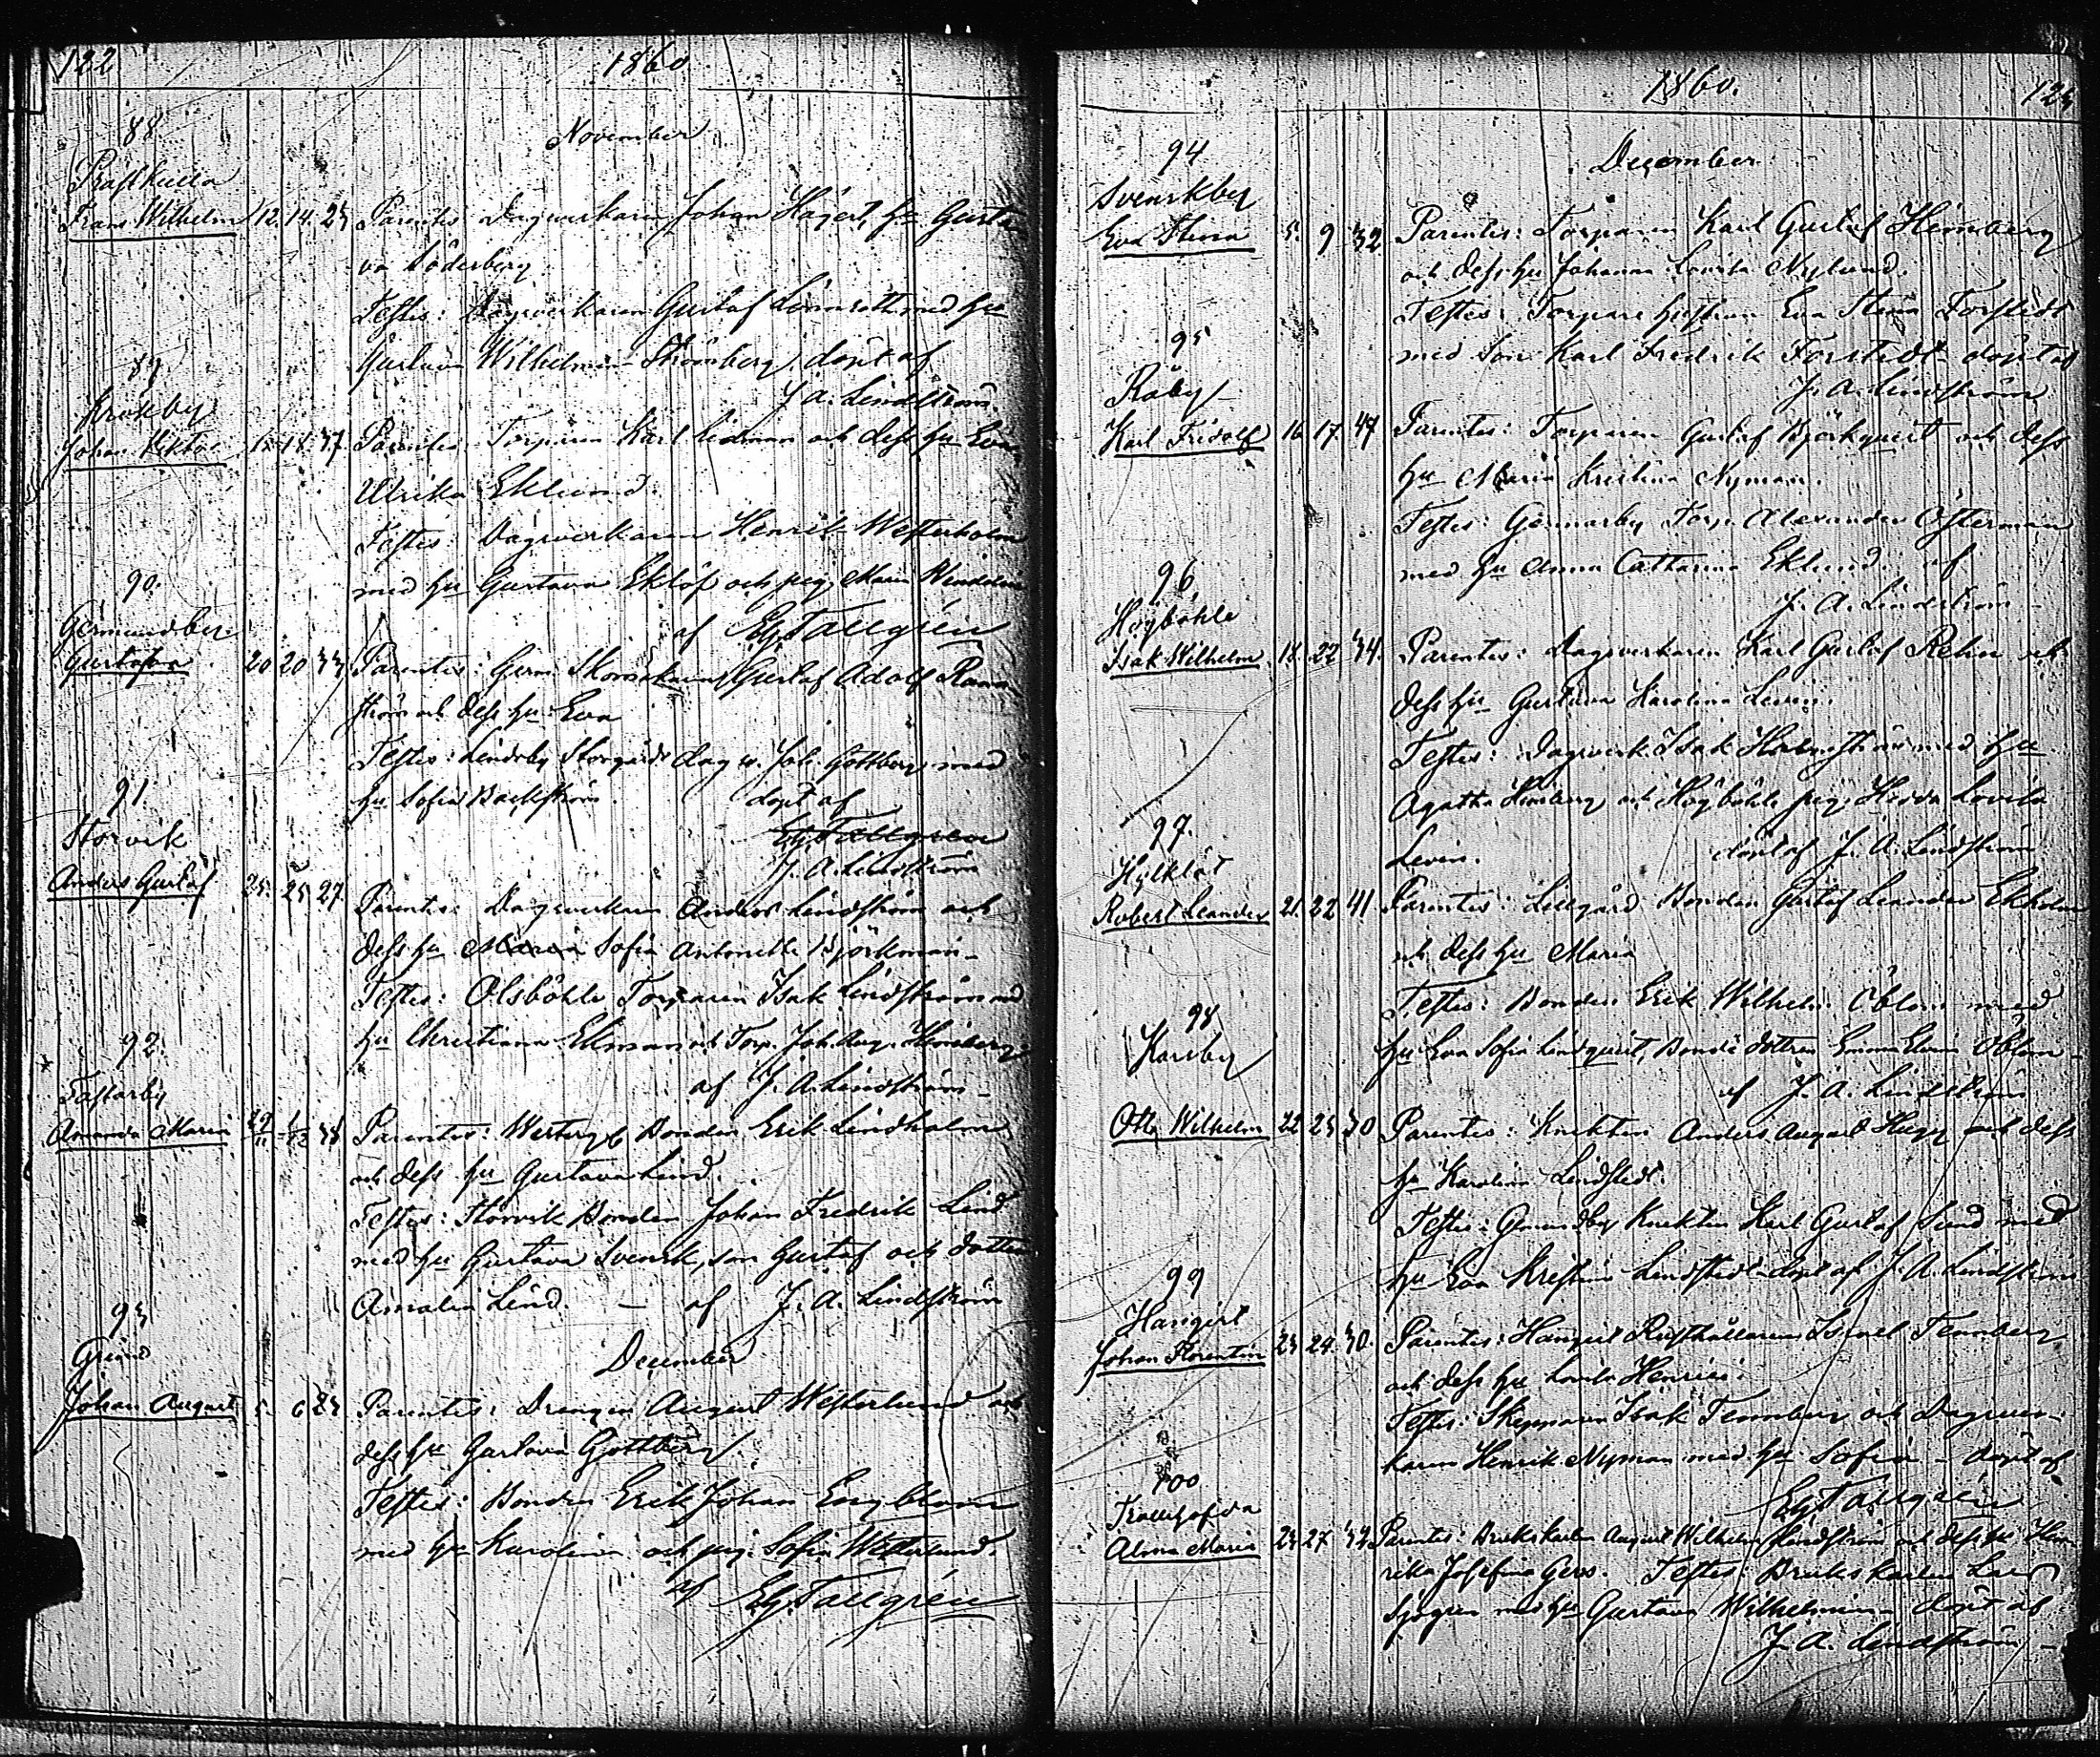 122
1860
November
88
Prästkulla
Frans Wilhelm 12. 14. 23 Parentes: Dagsverkaren Johan Hägert, hu Gusta
va Söderberg
Testes: Dagsverkaren Gustaf Lönnroth med hu
Gustava Wilhelmina Strömberg, döpt af
J. A. Lindström
89
Krokby
Johan Viktor 18 37 Parentes: Torparen Karl och dess hu Eva
Ulrika Eklund.
Testes: Dagsverkaren Henrik Westerholm
med hu Gustava Eklöf och pig. Maria
af EgTallgrén
90.
Germundby
Gustafva 20 20 33 Parentes: Germ. Gustaf Adolf
ström och dess hu Eva
Testes: Lindöby Storgårds dag v. Joh. Gottberg med
hu Sofia Backström. döpt af
EgTallgren
J. A. Lindström
91
Storvik
Anders Gustaf 25. 25 27. Parentes: Dagsverkaren Anders Lindström och
dess hu Maria Sofia Antonette Björkman
Testes: Olsböhle Torparen Isak Lindström med
hu Christiana Ekman och Torp. Joh. Aug. Heimberg
af J. A. Lindström
92.
Fastarby
Amanda Maria 29/11 1/12 38 Parentes: Westergd Bonden Erik Lindholm
och dess hu Gustava Lind.
Testes: Storvik Bonden Johan Fredrik Lind
med hu Gustava Svensk, son Gustaf och dotter
Amalia Lind. — af J. A. Lindström
93
December
Johan August 5. 6 23 Parentes: Drengen August Westerlund och
dess hu Gustava Gottberg
Testes: Bonden Erik Johan Engblom
med hu Karolina och pig. Sofia Westerlund.
af EgTallgrén
1860.
123
December
94
Svenskby
Eva Stina 5. 9 32. Parentes: Torparen Karl Gustaf Heimberg
och dess hu Johanna Lovisa Nylund.
Testes: Torpare hustrun Eva Stina Forstedt
med Son Karl Fredrik Forstedt döpt af
J. A. Lindström
95
Råby
Karl Fridolf 16 17 47 Parentes: Torparen Gustaf Björkqvist och dess
hu Maria Kristina Nyman.
Testes: Gennarby Torp. Alexander Österman
med hu Anna Catharina Eklund. af
J. A. Lindström
96
Högböhle
Isak Wilhelm 18. 22 34. Parentes: Dagsverkaren Karl Gustaf Rehn och
dess hu Gustava Karolina Levin.
Testes: Dagsverk. Isak Holmström med hu
Agatha Heimberg och Högböhle pig. Hedda Lovisa
Levin. döpt af J. A. Lindström
97.
Robert Leander 21. 22 41. Parentes: Lillgård Bonden Gustaf Leander Ekholm
och dess hu Maria
Testes: Bonden Erik Wilhelm Öblom med
hu Eva Sofia Lindqvist, Bonde dottren Emma Öblom
af J. A. Lindström
98
Karsby
Otto Wilhelm 22 23 30 Parentes: Knekten Anders August Hugg och dess
hu Karolina Lindstedt.
Testes: Germundby Knekten Karl Gustaf Sund med
hu Eva Kristina Lindstedt döpt af J. A. Lindström
99
Hangist
Johan Florentin 23 24. 30. Parentes: Hangist Rusthållaren Israel Tennberg
och dess hu Lovisa Henrics.
Testes: Skepparen Isak Tennberg och Dagsver-
karen Henrik Nyman med hu Sofia — döpt af
EgTallgrén
100
Alma Maria 23 27 32 Parentes: Brukskarlen August Wilhelm Lindström och dess hu Hen
rika Josefina Gers. Testes: Brukskarlen
Sjögren med hu Gustava Wilhelmina döpt af
J. A. Lindström